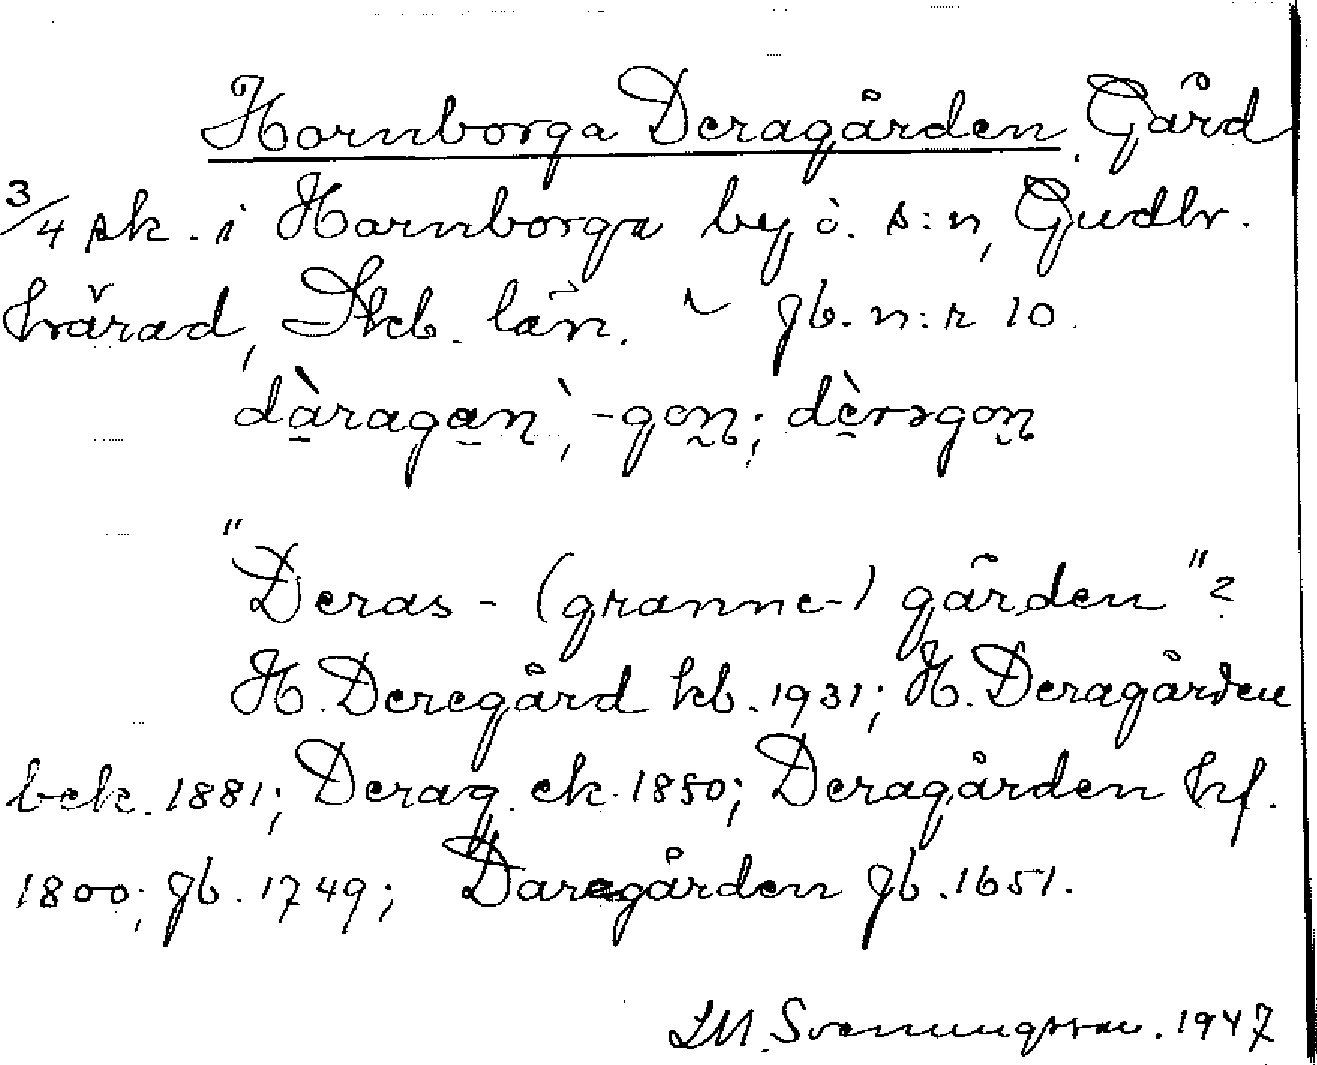 Hornborga Deragården, Gård
3/4 sk. i Hornborga by o. s:n, Gudh.
härad, Skb. län. ~ Jb. n:r 10.
dàragan`, -gon; dèrəgon
"Deras- (granne-) gården"?
H. Deregård kb. 1931; H. Deragården
bek. 1881; Derag. ek. 1850; Deragården hf.
1800; Jb. 1749; Daregården Jb. 1651.
LM. Svenungsson. 1947